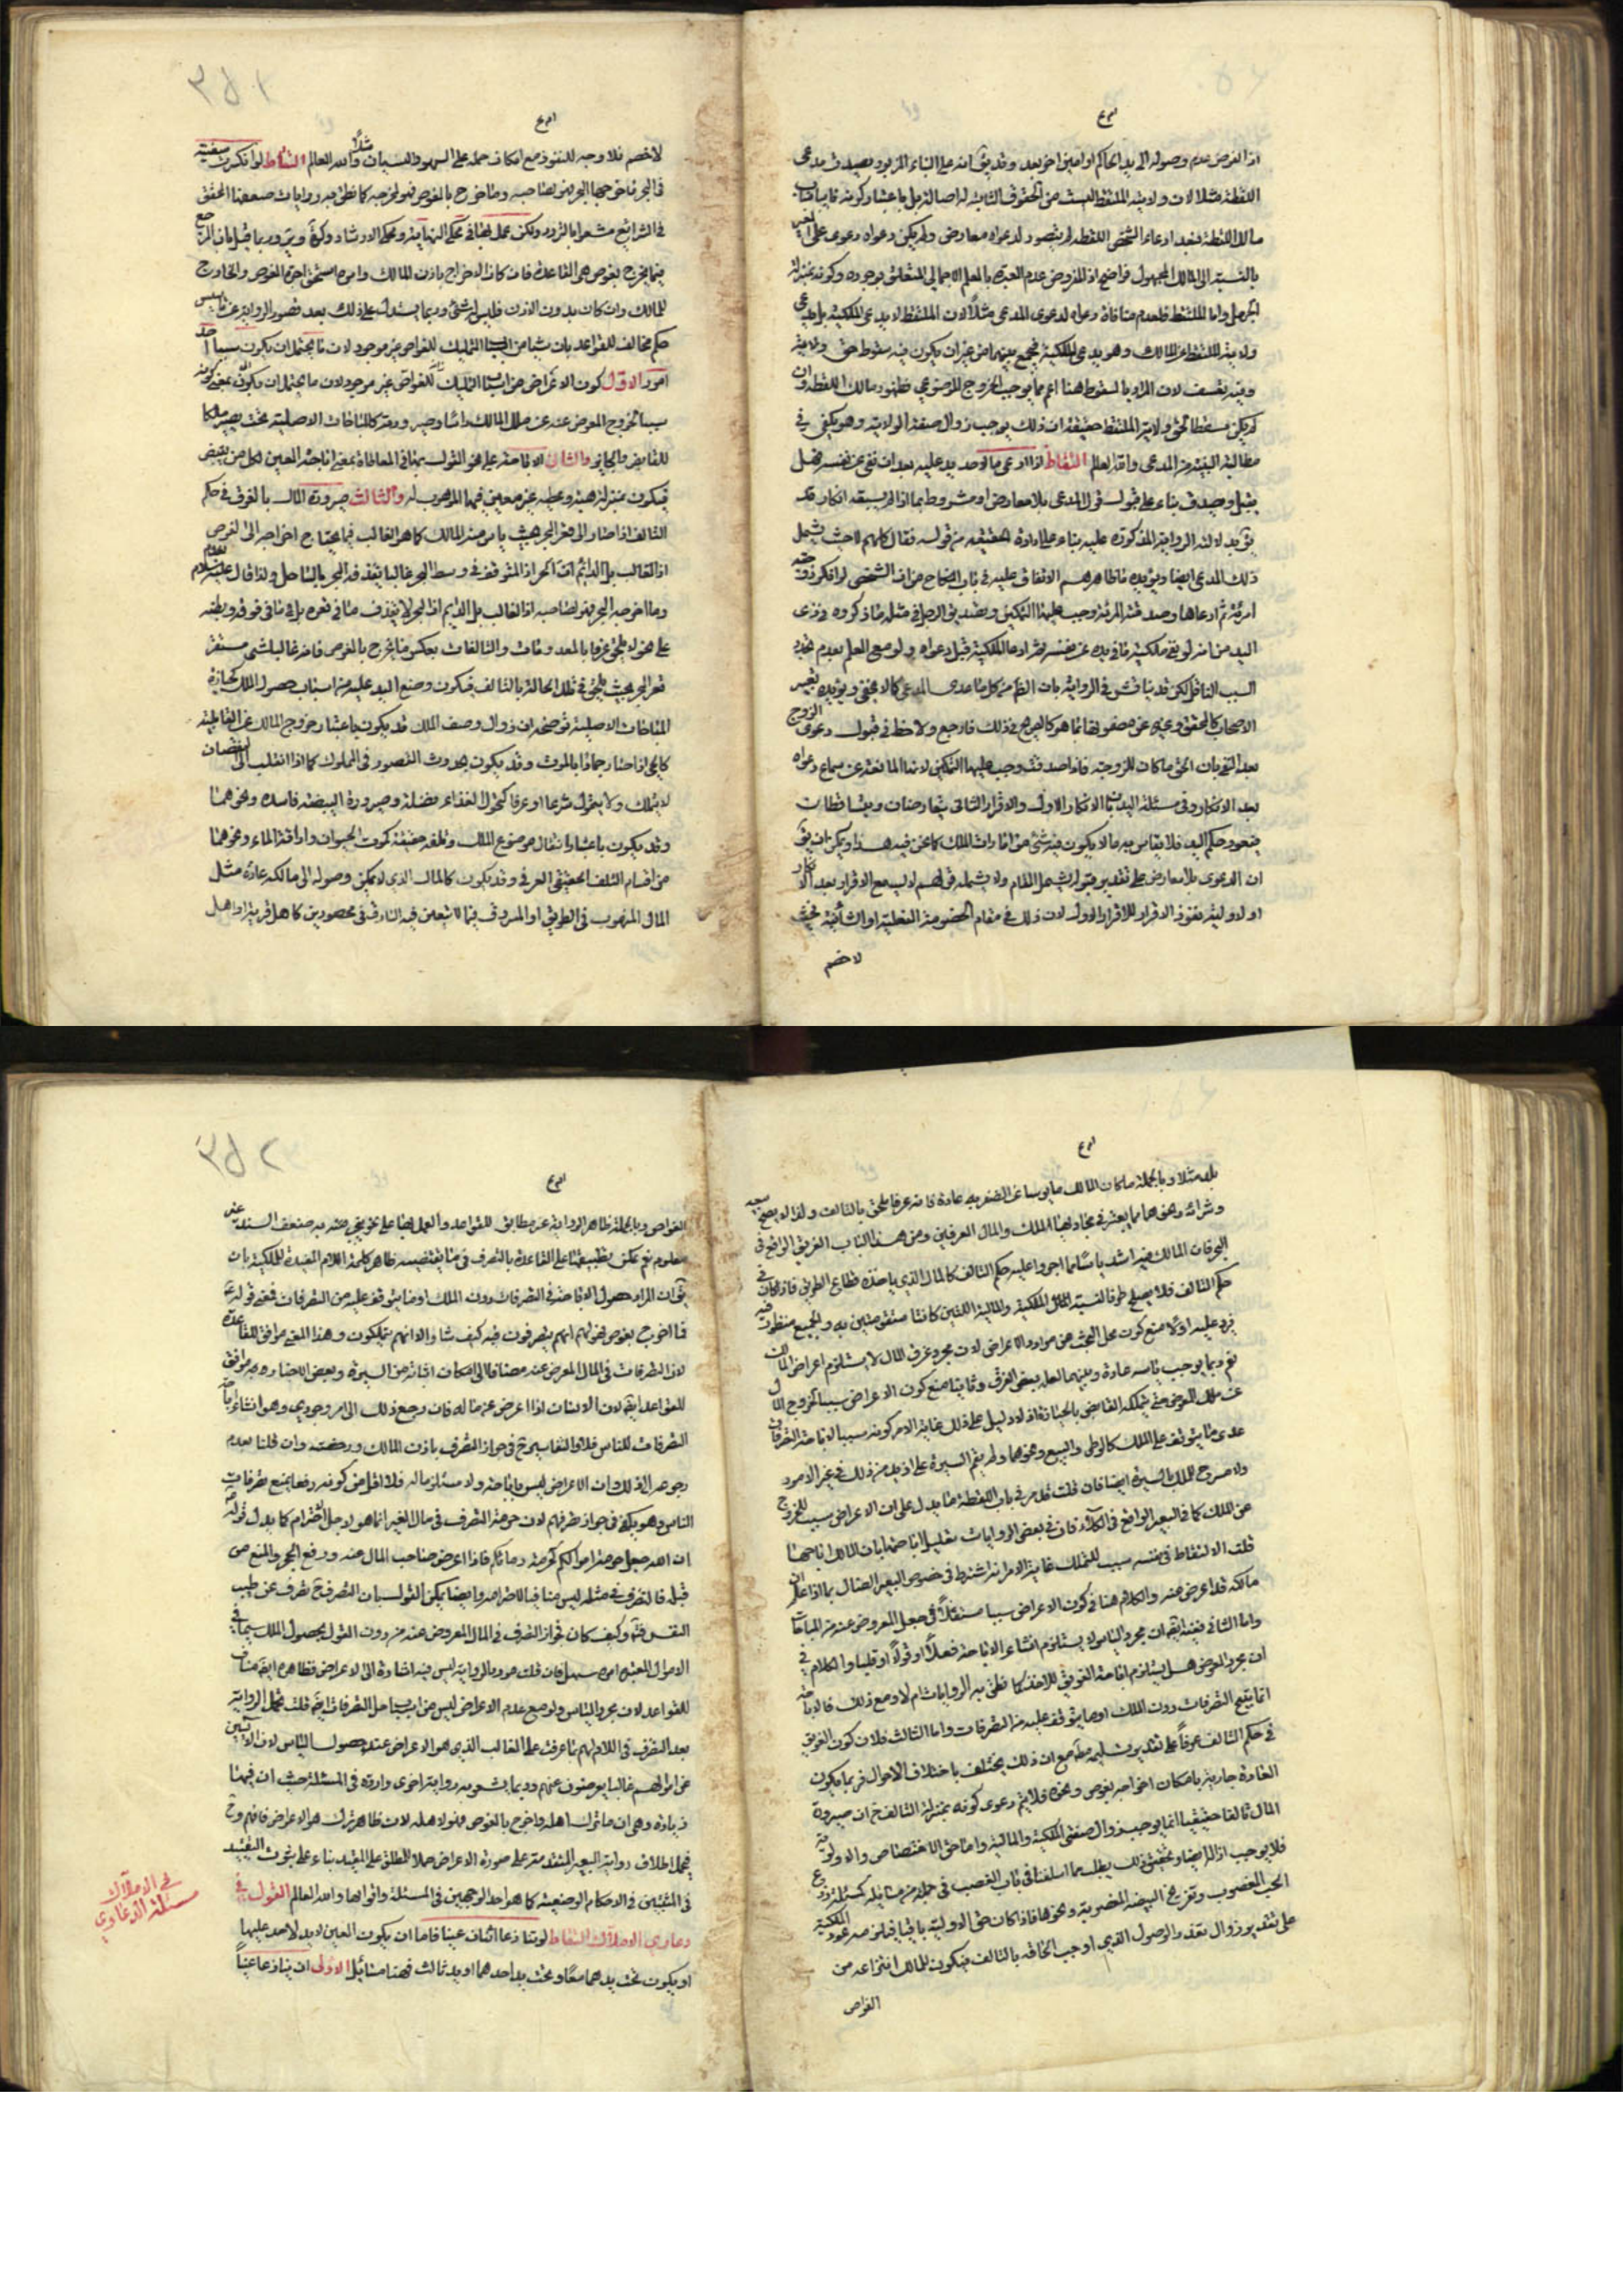 اذا الفرض عدم وصوله الى يد الحاكم او امين اخر بعد وقد يق انه على البناء المزبور يصدق مدعى
اللقطة مثلا لان ولاية الملتقط ليست من الحقوق الثابتة له اصالة بل باعتبار كونه نايبا عن
مالك اللقطة فبعد ادعاء الشخص اللقطة لم يتصور لدعواه معارض ولم يكن دعواه دعوى على الغير
بالنسبة الى المالك المجهول فواضح اذ المفروض عدم العبرة بالعلم الاجمالي المتعلق بوجوده وكونه بمنزلة
الجهل واما الملتقط فلعدم منافاة دعواه لدعوى المدعى مثلا لان الملتقط لا يدعى الملكية بل يدعى
ولاية اللقطة عن المالك وهو يدعى الملكية فيجمع بينهما من غير ان يكون فيه سقوط حق ولاية
وفيه تعسف لان المراد بالسقوط هنا اعم مما يوجب الخروج الموضوعى فظهور مالك اللقطة وان
لم يكن مسقطا لحق ولاية الملتقط حقيقة الا ان ذلك يوجب زوال صفة الولاية وهو يكفى فى
مطالبة البينة من المدعى والله العالم التقاط اذا ادعى مالا احد يد عليه بعد ان نفى عن نفسه فهل
يقبل ويصدق بناء على قبول قول المدعى بلا معارض او مشروط بما اذا لم يسبقه انكار قد
يؤيد لدلالة الرواية المذكورة عليه بناء على ارادة الحقيقة من قوله فقال كلهم لا حيث يشمل
ذلك المدعى ايضا ويؤيده ما ظاهرهم الاتفاق عليه فى باب النكاح من ان الشخص لو انكر زوجية
امرئة ثم ادعاها وصدقته المرئة وجب عليها التمكين وتصديق الرجل فى مثله ما ذكروه فى ذى
اليد من انه لو نفى ملكية ما فى يده عن نفسه ثم ادعا الملكية قبل دعواه ولو مع العلم بعدم تجدد
السبب الناقل لكن قد يناقش فى الرواية بان الظاهر كل ما عدى المدعى كما لا يخفى ويؤيده تعبير
الاصحاب كالمحقق وغيره عن مضمونها بما هو كالصريح فى ذلك فارجع ولاحظ فى قبول دعوى الزوج
بعد النفى بان الحق ما كان للزوجة فاذا صدقت وجب عليها التمكين لانها المانعة عن سماع دعواه
بعد الانكار وفى مسئلة اليد بان الانكار الاول والاقرار الثانى يتعارضان ويتساقطان
فيعود حكم اليد فلا يقاس به ما لا يكون فيه شئ من امارات الملك كما نحن فيه هذا ويمكن ان يق
ان الدعوى بلا معارض على تقدير قبوله يشمل المقام ولا يشمله قولهم لا يسمع الاقرار بعد الانكار
او لاولية نفوذ الاقرار للاقرار الاول لان ذلك فى مقام الخصومة الفعلية او الشأنية فحيث
لا خصم
لا خصم فلا وجه للنفوذ مع امكان حمله على السهو والنسيان مثلا والله العالم التقاط لو انكسرت سفينة
فى البحر فما اخرجها البحر فهو لصاحبه وما اخرج بالغوص فهو لمخرجه كما نطق به روايات ضعفها المحقق
فى الشرايع مشعرا بالتردد ولكن عمل بها فى محكى النهاية ومحكى الارشاد وكرة ويق وربما قيل بان المرجع
فيما يخرج بغوص هى القاعدة فان كان الاخراج باذن المالك وامره استحق اجرة الغوص والخارج
للمالك وان كان بدون الاذن فليس له شئ وربما يستدل على ذلك بعد قصور الرواية عن تاسيس
حكم مخالف للقواعد بان شيئا من اسباب التمليك للغواص غير موجود لان ما يحتمل ان يكون سببا احد
امور الاول كون الاعراض من اسباب التمليك للغواص غير موجود لان ما يحتمل ان يكون بمعنى كونه
سببا لخروج المعرض عنه عن ملك المالك راسا وصيرورته كالمباحات الاصلية بحيث يصير ملكا
للقابض والحايز والثانى الاباحة على نحو القول بها فى المعاطاة بمعنى اباحة العين لكل من يقبض
فيكون بمنزلة هبة وعطية غير معين فيها الموهوب له والثالث صيرورة المال بالغرق فى حكم
التالف اذا صار الى قعر البحر بحيث ياس منه المالك كما هو الغالب فيما يحتاج اخراجه الى الغوص
اذ الغالب بل الدائم ان البحر اذا المتوقف فى وسط البحر غالبا بقذفه البحر بالساحل ولذا قال عليه السلام
وما اخرجه البحر فهو لصاحبه اذ الغالب بل الدايم ان البحر لا يقذف ما فى قعره بل ما فى فوقه وبطنه
على نحو لا يلحق عرفا بالمعدومات والتالفات بعكس ما يخرج بالغوص فانه غالبا شئ مستقر
قعر البحر بحيث يلحق فى تلك الحالة بالتالف فيكون وضع اليد عليه من اسباب حصول الملك كحيازة
المباحات الاصلية توضيحه ان زوال وصف الملك قد يكون باعتبار خروج المالك عن القابلية
كالحى اذا صار جمادا بالموت وقد يكون بحدوث القصور فى المملوك كما اذا انقلب الى نقصان
لا يملك ولا يتمول شرعا او عرفا كتحول الغذاء فضلة وصيرورة البيضة فاسدة ونحوهما
وقد يكون باعتبار انتقال موضوع الملك وتلفه حقيقة كموت الحيوان واراقة الماء ونحوهما
من اقسام التلف الحقيقى العرفى وقد يكون كالمال الذى لا يمكن وصوله الى مالكه عادة مثل
المال المنهوب فى الطريق او المسروق فيما لا يتعين فيه السارق فى محصورين كاهل قرية او اهل
بلد مثلا وبالجملة ما كان المالك مايوسا عن الظفر به عادة فانه عرفا ملحق بالتالف ولذا لا يصح بيعه
وشرائه ونحوهما مما يعتبر فى مجاريها الملك والمال العرفيين ومن هذا الباب الغريق الواقع فى
البحر فان المالك فيه اشد ياسا مما اجروا عليه حكم التالف كالمال الذى ياخذه قطاع الطريق فاذا كان فى
حكم التالف فلا يصلح طرفا لنسبة الملك الملكية والمالية اللتين كانتا متقومتين به والجميع منظور فيه
يرد عليه اولا منع كون محل البحث من موارد الاعراض لان مجرد غرق المال لا يستلزم اعراض المالك
نعم ربما يوجب ياسه عادة وبينهما لعله بعض الفرق وثانيا منع كون الاعراض سببا لخروج المال
عن ملك المعرض حتى يتملكه القابض بالحيازة اذ لا دليل على ذلك غاية الامر كونه سببا لاباحة التصرفات
عدى ما يتوقف على الملك كالوطى والبيع ونحوهما ولم يقم السيرة على ازيد من ذلك فى غير الامور
ولا مسرح للملك بالسيرة ايضا فان قلت قد مر فى باب اللقطة ما يدل على ان الاعراض سبب للخروج
عن الملك كما فى البعير الواقع فى الكلاء فان فى بعض الروايات تعليل اباحتها بان المالك اباحها
قلت الالتقاط فى نفسه سبب للتملك غاية الامر انه اشترط فى خصوص البعير الضال بما اذا علم ان
مالكه قد اعرض عنه والكلام هنا فى كون الاعراض سببا مستقلا فى جعل المعروض عنه من المباحات
واما الثانى ففيه ايضا ان مجرد الياس لا يستلزم انشاء الاباحة فعلا او قولا او قلبا والكلام فى
ان مجرد العوض هل يستلزم اباحة الغريق للاخذ كما نطق به الروايات ام لا ومع ذلك فالاباحة
انما يتيح التصرفات دون الملك او ما يتوقف عليه من التصرفات واما الثالث فلان كون الغريق
فى حكم التالف عرفا على تقدير تسليمه مع ان ذلك يختلف باختلاف الاحوال فربما يكون
العادة جارية بامكان اخراجه بغوص ونحوه فلا يتم دعوى كونه بمنزلة التالف مع ان صيرورة
المال تالفا حقيقيا انما يوجب زوال صفتى الملكية والمالية واما حق الاختصاص والاولوية
فلا يوجب ازالتها ايضا وتحقيق ذلك يطلب مما اسلفنا فى باب الغصب فى جملة من مسائله كمسئلة زرع
الحب المغصوب وتفريخ البيضة المغصوبة ونحوها فاذا كان حق الاولوية باقيا فيلزمه عود الملكية
على تقدير زوال تعذر الوصول الذى اوجب الحاقه بالتالف فيكون للمالك انتزاعه من
الغواص
الغواص وبالجملة ظاهر الرواية غير مطابق للقواعد والعمل بها على نحو يخرج عنه به ضعف السند غير
معلوم نعم يمكن تطبيقها على القاعدة بالتصرف فى ما يقتضيه ظاهر كلمة اللام المفيدة للملكية بان
يق ان المراد حصول الاباحة فى التصرفات دون الملك او ما يتوقف عليه من التصرفات فمعنى قوله ع
فما اخرج بغوص فهو لهم انهم يتصرفون فيه كيف شاؤا لا انهم يملكون وهذا المعنى موافق للقاعدة
لان التصرفات فى المال المعرض عنه مضافا الى امكان اثباته من السيرة وبعض الاخبار ده موافق
للقواعد ايضا لان الانسان اذا اعرض عن ماله فان رجع ذلك الى امر وجودى وهو انشاء اباحة
التصرفات للناس فلا التباس ح فى جواز التصرف باذن المالك ورخصته وان قلنا بعدم
رجوعه الى ذلك وان الاعراض ليس باباحة ولا مستلزما له فلا اقل من كونه رفعا لمنع تصرفات
الناس وهو يكفى فى جواز تصرفهم لان حرمة التصرف فى مال الغير انما هو لاجل احترام كما يدل قوله ع
ان الله جعل حرمة اموالكم كحرمة دمائكم فاذا اعرض صاحب المال عنه ورفع الحجر والمنع من
قبله فالتصرف فى مثله ليس منافيا للاحترام وايضا يمكن القول بان التصرف ح تصرف عن طيب
النفس فتامل وكيف كان فجواز التصرف فى المال المعروض عنه من دون القول بحصول الملك سيما فى
الاموال المعتبرة امره سهل فان قلت مورد الرواية ليس فيه اشارة الى الاعراض فظاهره ايضا مناف
للقواعد لان مجرد الياس ولو مع عدم الاعراض ليس من اسباب حل التصرفات ايضا قلت يحمل الرواية
بعد التصرف فى اللام لهم بما عرفت على الغالب الذى هو الاعراض عند حصول الياس لان الايسين
عن اموالهم غالبا يعرضون عنهم وربما يشعر به رواية اخرى وارده فى المسئلة حيث ان فيها
زيادة وهى ان ما ترك اهله فاخرج بالغوص فهو لاهله لان ظاهر ترك هو الاعراض فافهم وح
فيحمل اطلاق رواية البعير المتقدمة على صورة الاعراض حملا للمطلق على المقيد بناء على ثبوت التقييد
فى المثبتين فى الاحكام الوضعية كما هو احد الوجهين فى المسئلة واقواها والله العالم القول فى
دعاوى الاملاك التقاط لو تنازعا اثنان عينا فاما ان يكون العين لا يد لاحد عليها
او يكون تحت يدهما معا او تحت يد احدهما او يد ثالث فهنا مسائل الاولى ان ينازعا عينا
فى الاملاك
مسئلة الدعاوى